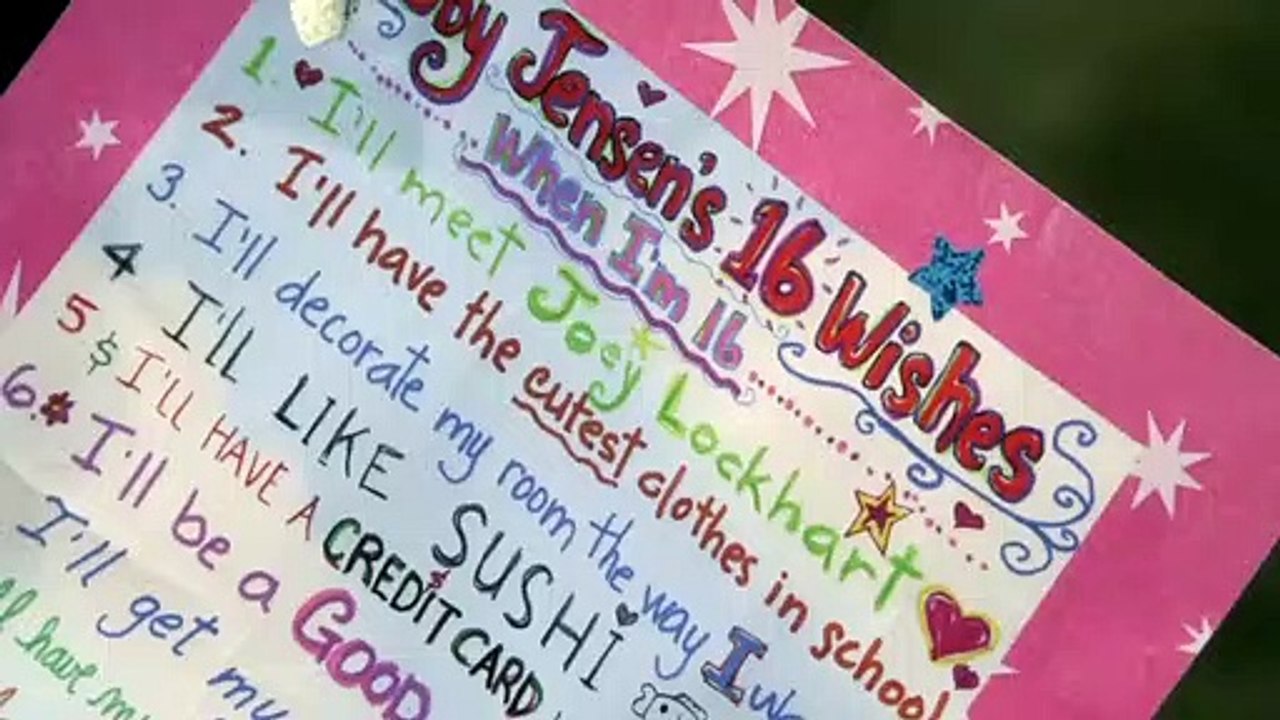 Jensen's 16 Wishes
When I'm 16
1. I'll meet Joey Lockhart
2. I'll have the cutest clothes in school
3. I'll decorate my room the way I
4 I'LL LIKE SUSHi
5 $ I'LL HAVE A CREDIT CARD
6. I'll be a GOOD
I'll get my
have my